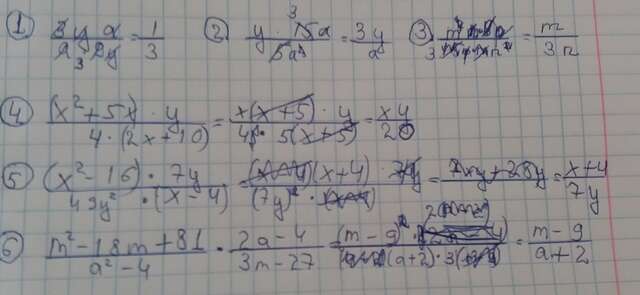 ① 3y a / a 3 9y = 1/3 ② y · 15a 3 / 5a² = 3y/a ③ = m/3n
④ (x²+5x) · y / 4·(2x+10) = x(x+5) · y / 4 · 5(x+5) = xy/20
⑤ (x²-16) · 7y / 49y² · (x-4) = (x-4)(x+4) · 7y / (7y)² · (x-4) = 7xy+28y = x+4/7y
⑥ m²-18m+81 / a²-4 · 2a-4 / 3m-27 = (m-9)² / (a+2) · 3 = m-9/a+2